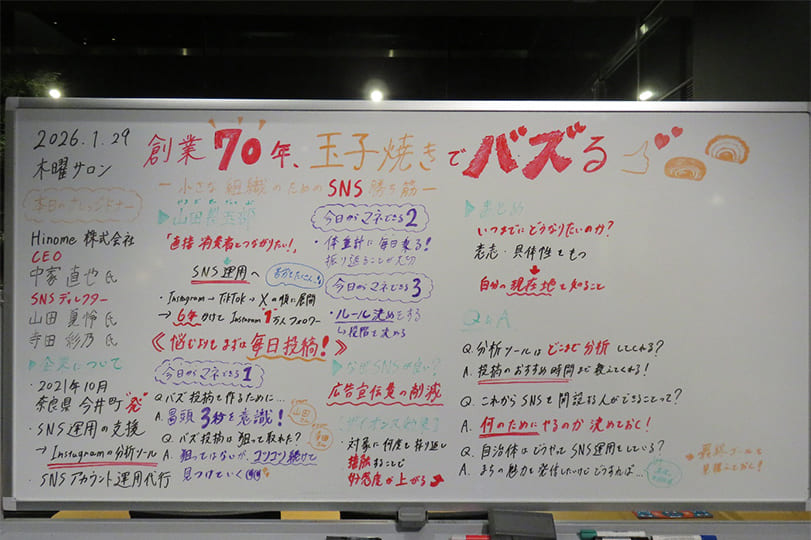 2026.1.29
木曜サロン
創業70年、玉子焼きでバズる
ー小さな組織のためのSNS勝ち筋ー
本日のナレッジドナー
Hinome 株式会社
CEO
中家 直也 氏
SNSディレクター
山田 夏怜 氏
寺田 彩乃 氏
▷企業について
・2021年10月
奈良県 今井町"発"
・SNS運用の支援
→Instagramの分析ツール
・SNSアカウント運用代行
▷山田製玉部
「直接 消費者とつながりたい!」
SNS運用へ
・Instagram→TikTok→Xの順に展開
→6年かけてInstagram 1万人フォロワー
《悩むよりもまずは毎日投稿!》
今日からマネできる1
Q.バズ投稿を作るために…
A.冒頭3秒を意識!
山田さん
Q.バズ投稿は狙って取れた?
寺田さん
A.狙ってはないが、コツコツ続けて
見つけていく
今日からマネできる2
・体重計に毎日乗る!
振り返ることが大切
今日からマネできる3
・ルール決めをする
↳段階を決める
▷なぜSNSが良い?
広告宣伝費の削減
ザイオンス効果
・対象に何度も繰り返し
接触することで
好感度が上がる
▷まとめ
いつまでにどうなりたいのか?
意志・具体性をもつ
自分の現在地を知ること
Q&A
Q.分析ツールはどこまで分析してくれる?
A.投稿のおすすめ時間まで教えてくれる!
Q.これからSNSを開設する人ができることって?
A.何のためにやるのか決めておく!
Q.自治体はどうやってSNS運用をしている?
A.まちの魅力を発信したいけどどうすれば…
最終ゴールを
見据えておく!